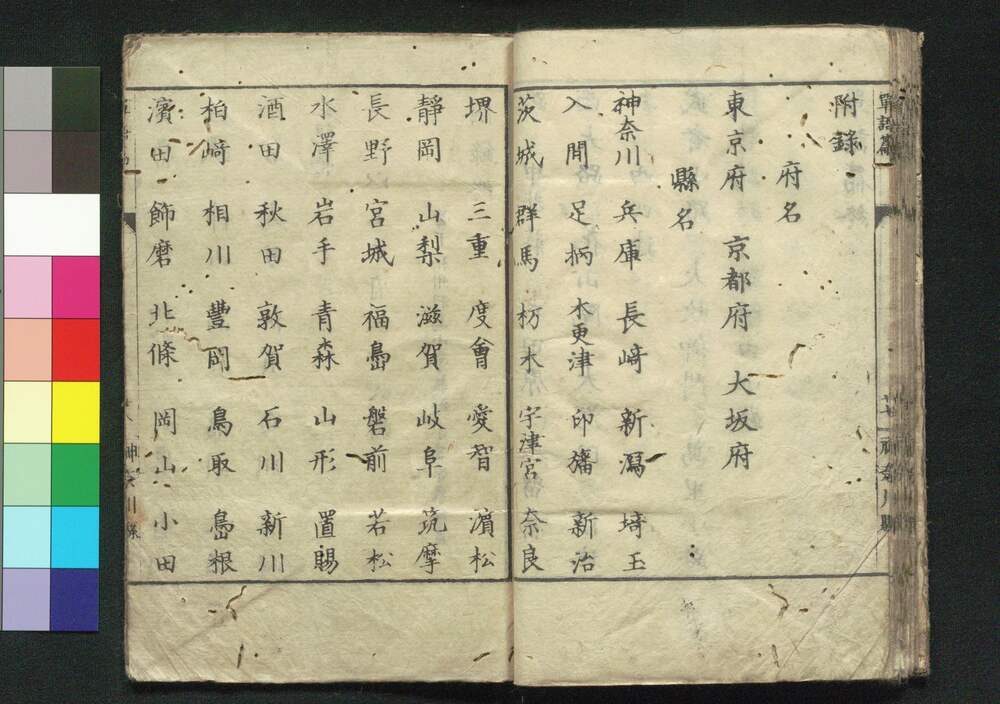 單語篇
附錄
府名
東京府 京都府 大坂府
縣名
神奈川 兵庫 長﨑 新潟 埼玉
入間 足柄 木更津 印旛 新治
茨城 群馬 杤木 宇津宮 奈良
堺 三重 度會 愛智 濱松
靜岡 山梨 滋賀 岐阜 筑摩
長野 宮城 福島 磐前 若松
水澤 岩手 青森 山形 置賜
酒田 秋田 敦賀 石川 新川
柏﨑 相川 豐岡 鳥取 島根
濱田 飾磨 北條 岡山 小田
神奈川縣